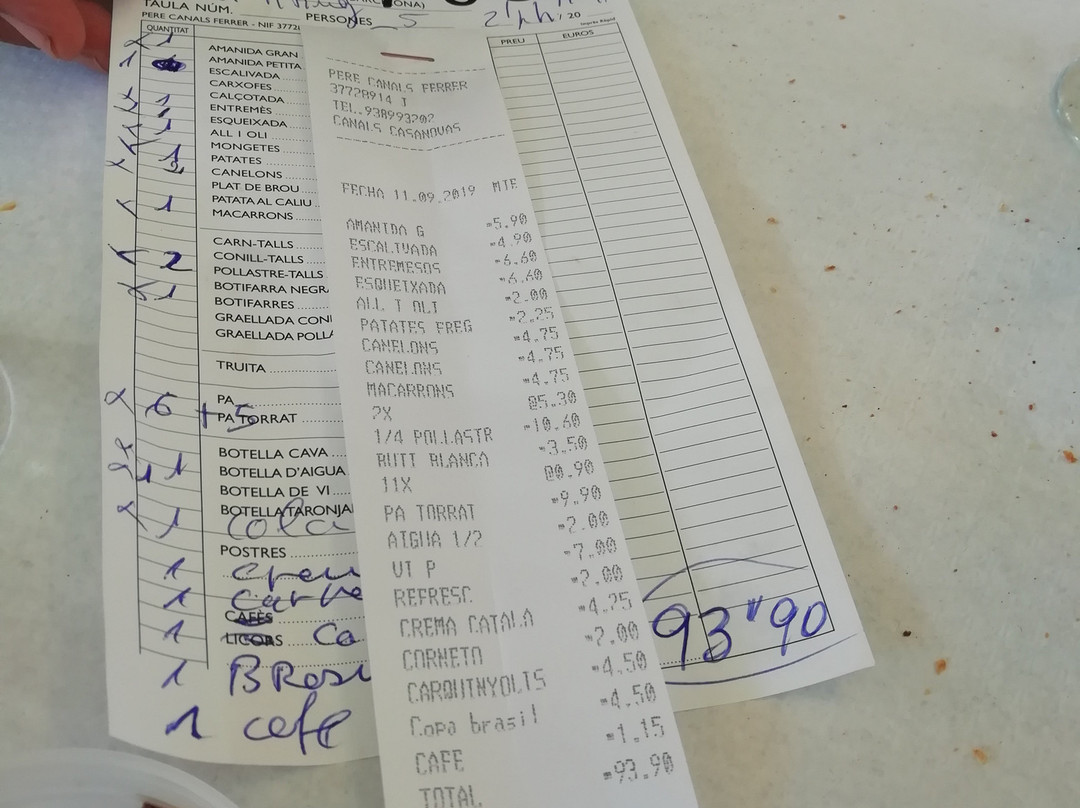 ONA)
TAULA NÚM.
PERSONES 5
/ 20
PERE CANALS FERRER - NIF 3772
QUANTITAT
PREU
EUROS
AMANIDA GRAN
AMANIDA PETITA
ESCALIVADA
CARXOFES
CALÇOTADA
ENTREMÈS
ESQUEIXADA
ALL I OLI
MONGETES
PATATES
CANELONS
PLAT DE BROU
PATATA AL CALIU
MACARRONS
CARN-TALLS
CONILL-TALLS
POLLASTRE-TALLS
BOTIFARRA NEGR
BOTIFARRES
GRAELLADA CONI
GRAELLADA POLLA
TRUITA
PA
6 + 5
PA TORRAT
BOTELLA CAVA
BOTELLA D'AIGUA
BOTELLA DE VI
BOTELLA TARONJA
1 cola
POSTRES
1 crem
1 
CAFÈS
1 LICORS Ca
1 BRasi
1 cafe
93"90
PERE CANALS FERRER
37728914 T
TEL.938993202
CANALS CASANOVAS
FECHA 11.09.2019 MTE
AMANIDA G =5.90
ESCALIVADA =4.90
ENTREMESOS =6.60
ESQUEIXADA =6.60
ALL I OLI =2.00
PATATES FREG =2.25
CANELONS =4.75
CANELONS =4.75
MACARRONS =4.75
2X @5.30
1/4 POLLASTR =10.60
BUTI BLANCA =3.50
11X @0.90
PA TORRAT =9.90
AIGUA 1/2 =2.00
VI P =7.00
REFRESC =2.00
CREMA CATALA =4.25
CORNETO =2.00
CARQUINYOLIS =4.50
Copa brasil =4.50
CAFE =1.15
TOTAL =93.90